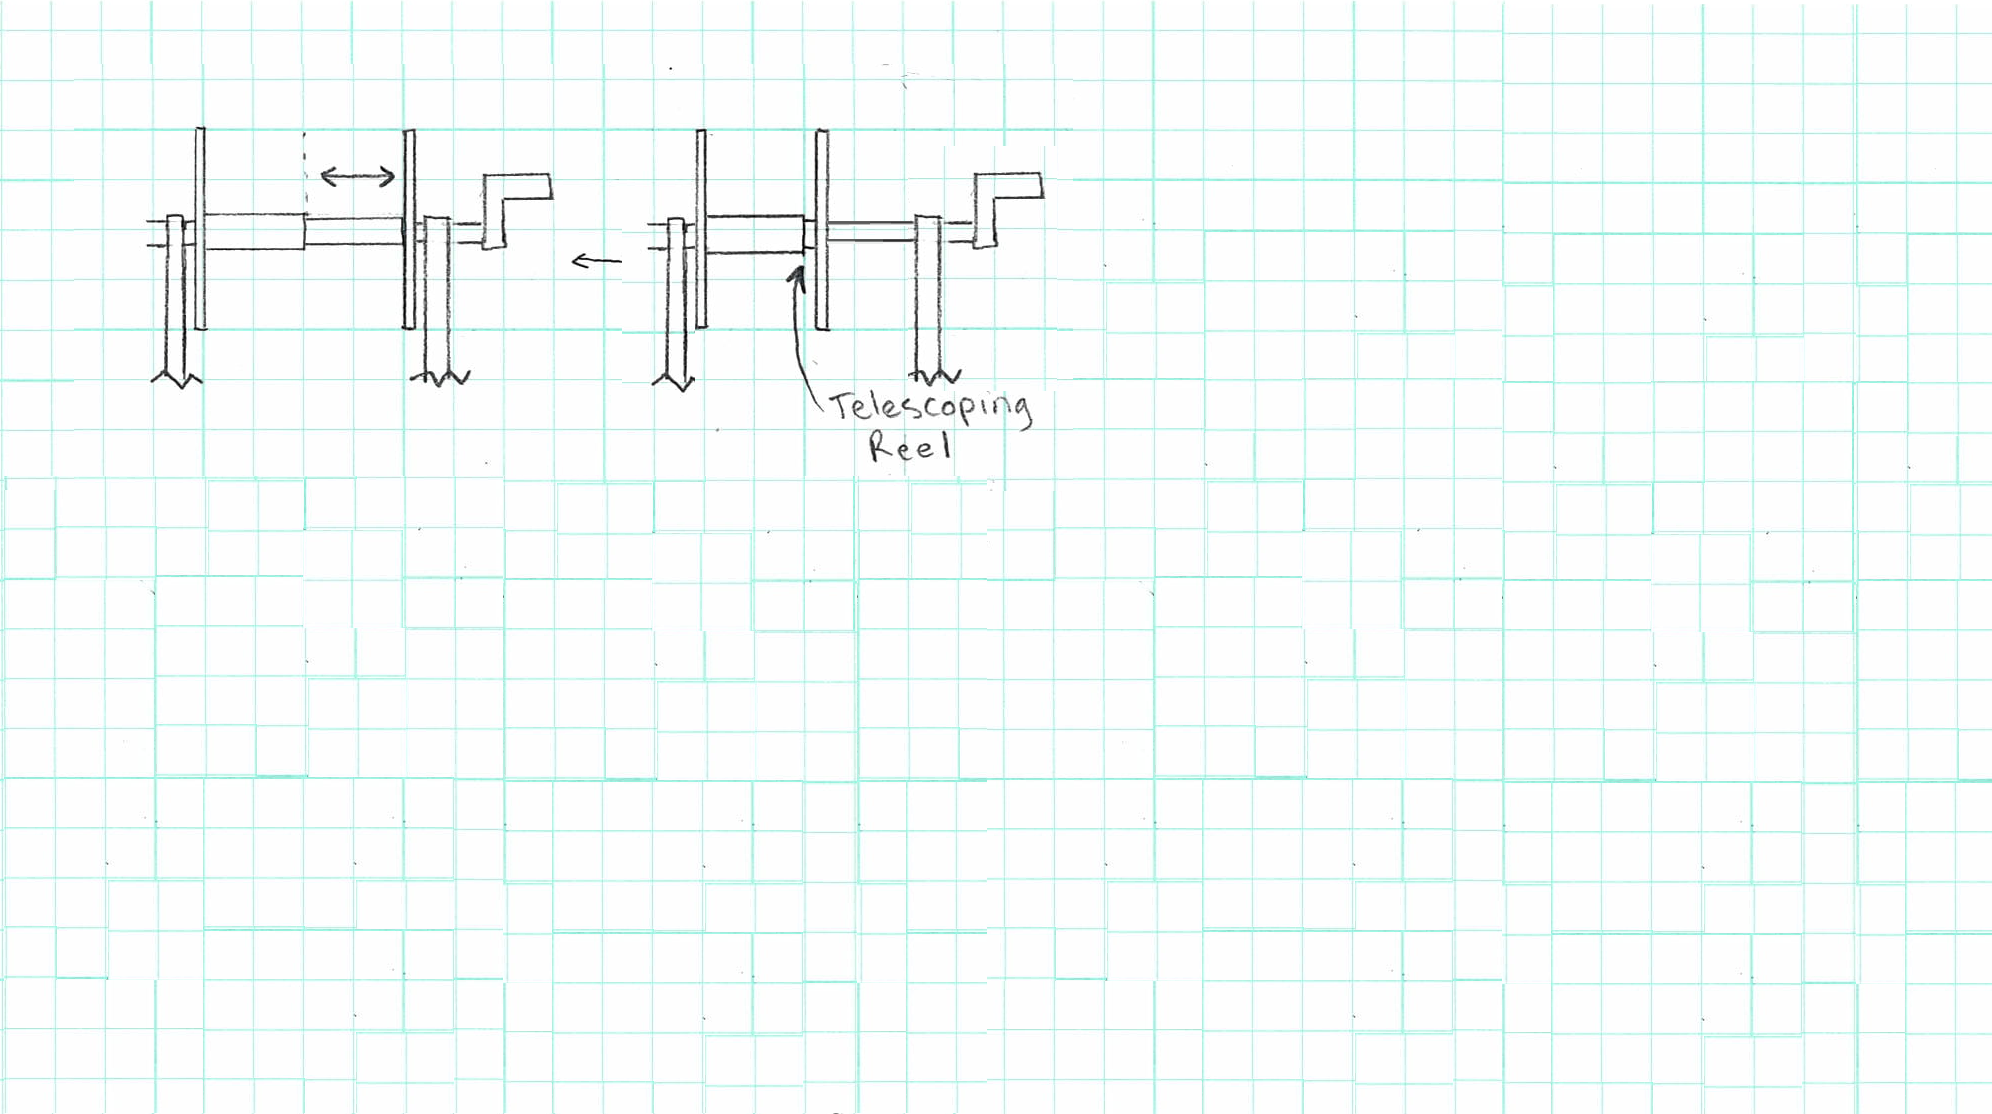 Telescoping
Reel